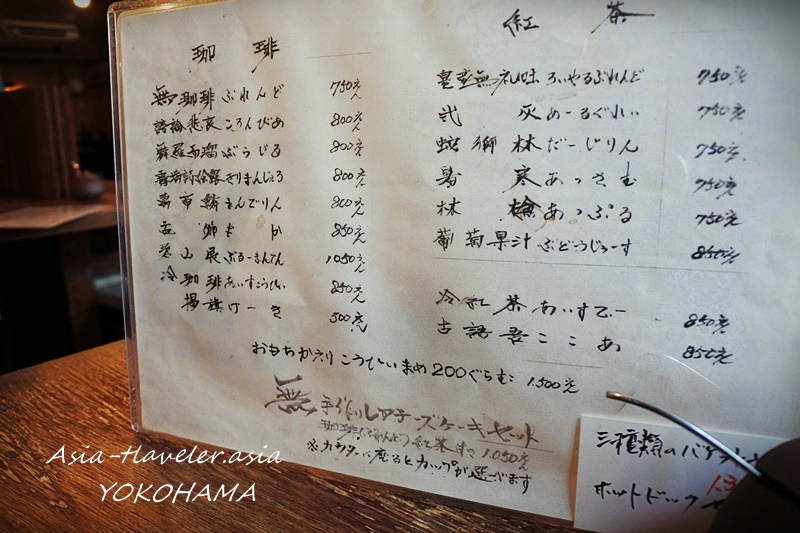 珈琲
無珈琲ぶれんど 750えん
ころんびあ 800えん
ぶらじる 800えん
きりまんじゃろ 800えん
まんでりん 800えん
もか 850えん
山 ぶるーまんてん 1050えん
冷珈琲あいすこうひい 850えん
けーき 500えん
紅茶
皇室無礼味ろいやるぶれんど 750えん
灰あーるぐれい 750えん
林だーじりん 750えん
寒あっさむ 750えん
林檎あっぷる 750えん
葡萄果汁ぶどうじゅーす 850えん
冷紅茶あいすてぃー 850えん
古 ここあ 850えん
おもちかえりこうひいまめ200ぐらむ 1,500えん
無 手作りレアチーズケーキセット
珈琲(ぶれんど) 紅茶 1,050えん
※カウンターに座るとカップが選べます
三種類の
ホットドック
Asia-traveler.asia
YOKOHAMA